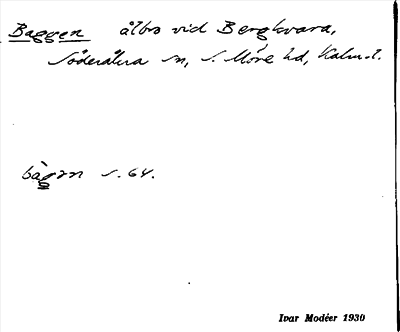 Baggen ålbo vid Bergkvara,
Söderåkra sn, S. Möre hd, Kalm. l.
bàgən s. 64.
Ivar Modéer 1930